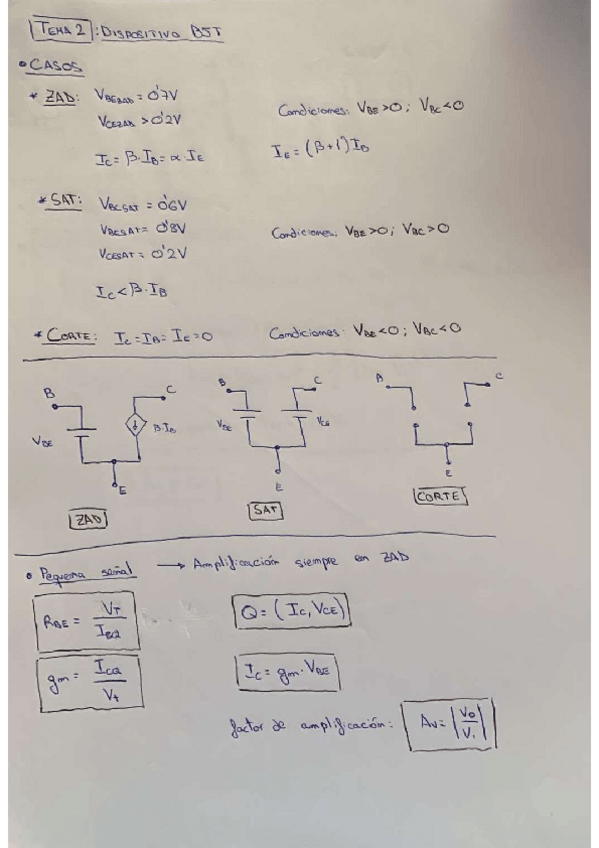 TEMA 2: DISPOSITIVO BJT
• CASOS
* ZAD: V_BEZAD = 0'7V
V_CEZAD > 0'2V
Condiciones: V_BE > 0; V_BC < 0
I_C = β·I_B = α·I_E
I_E = (β+1) I_B
* SAT: V_BCSAT = 0'6V
V_BESAT = 0'8V
Condiciones: V_BE > 0; V_BC > 0
V_CESAT = 0'2V
I_C < β·I_B
* CORTE: I_C = I_B = I_E = 0
Condiciones: V_BE < 0; V_BC < 0
B C B C C
V_BE β·I_B V_BE
E E E
ZAD SAT CORTE
• Pequeña señal → Amplificación siempre en ZAD
R_BE = V_T / I_BQ
Q = (I_C, V_CE)
g_m = I_CQ / V_t
I_C = g_m · V_BE
factor de amplificación: A_V = |V_o / V_i|